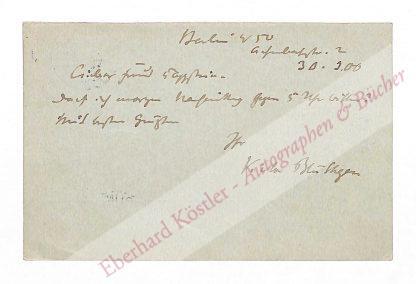 Berlin W 50
30. 3. 00
Lieber Freund
Darf ich morgen Nachmittag gegen 5 Uhr
Mit besten Grüßen
Ihr
Victor Blüthgen
Eberhard Köstler - Autographen & Bücher